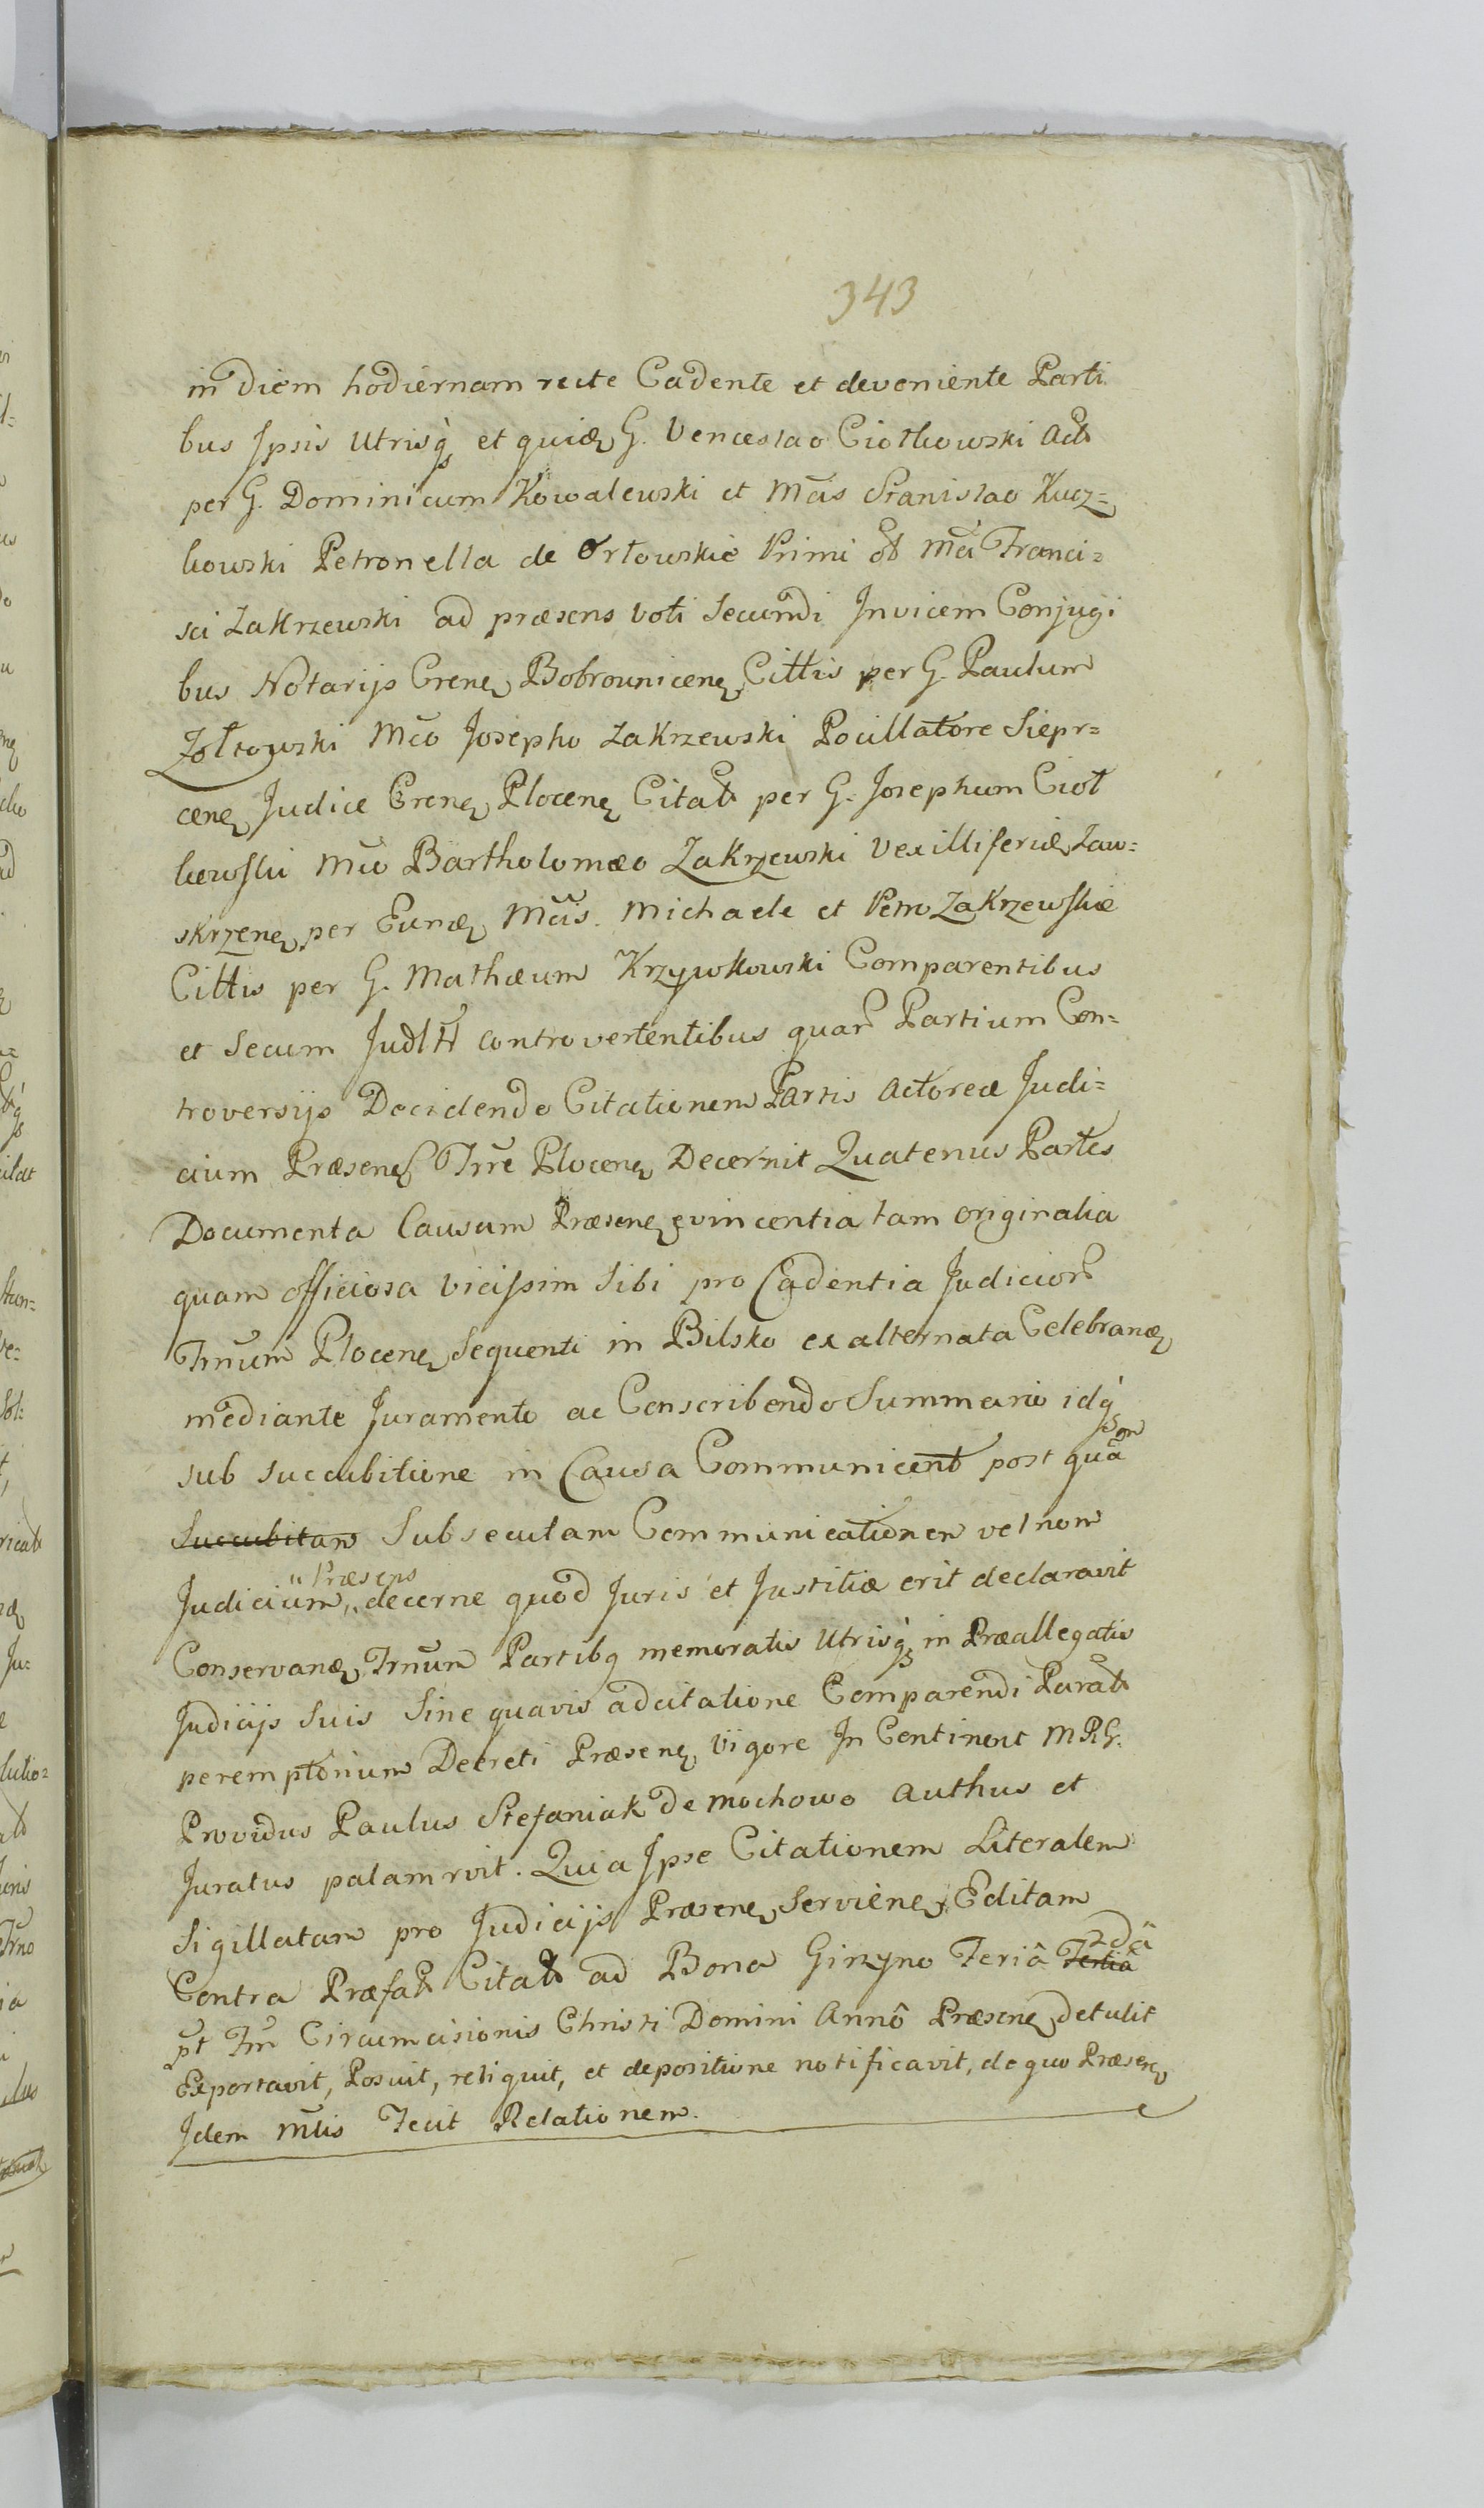 343
in diem hodiernam recte Cadente et deveniente Parti
bus Ipsis Utrisq̀ et quidę G. Venceslao Ciołkowski Act
per G. Dominicum Kowalewski et Mcis Stanislao Kucz=
kowski Petronella de Orłowskie Primi et Mci Franci=
sci Zakrzewski ad præsens voti Secundi Invicem Conjugi
bus Notarijs Crenę Bobrounicenę Cittis per G. Paulum
Zołtowski Mco Josepho Zakrzewski Pocillatore Siepr=
cenę Judice Crenę Plocenę Citat per G. Josephum Cioł
kowski Mco Bartholomæo Zakrzewski Vexilliferidę Zaw=
skrzenę per Eundę Mcis. Michaele et Petro Zakrzewskie
Cittis per G. Mathæum Krzywkowski Comparentibus
et Secum controvertentibus quar Partium Con=
troversijs Decidendo Citationem Partis Actoreæ Judi=
cium Præsenę Trre Plocenę Decernit Quatenus Partes
Documenta Causam Præsenę evincentia tam originalia
quam officiosa vicissim Sibi pro Cadentia Judicior
Trrnum Plocenę Sequenti in Bilsko ex alternata Celebrandę
mediante Juramento ac Conscribendo Summario idq̀
sub succubitione in Causa Communicent post quam
Succubitam Subsecutam Communicationem vel non
Judicium "Præsens decerne quod Juris et Justitiæ erit declaravit
Conservandę Trnum Partibq memoratis Utrisq̀ in Præallegatis
Judicijs Suis Sine quavis adcitatione Comparendi Parat
peremptorium Decreti Præsenę Vigore In Continent MRG.
Providus Paulus Stefaniak de Mochowo Authus et
Juratus palam rvit. Quia Ipse Citationem Literalem
Sigillatam pro Judicijs Præsenę Servienę Editam
Contra Præfat Citat ad Bona Girzyno Feriâ Tertiâ 2dâ
pt Fm Circumcisionis Christi Domini Annô Præsenę detulit
Exportavit, Posuit, reliquit, et depositione notificavit, de quo Præsenę
Idem Mlis Fecit Relationem.